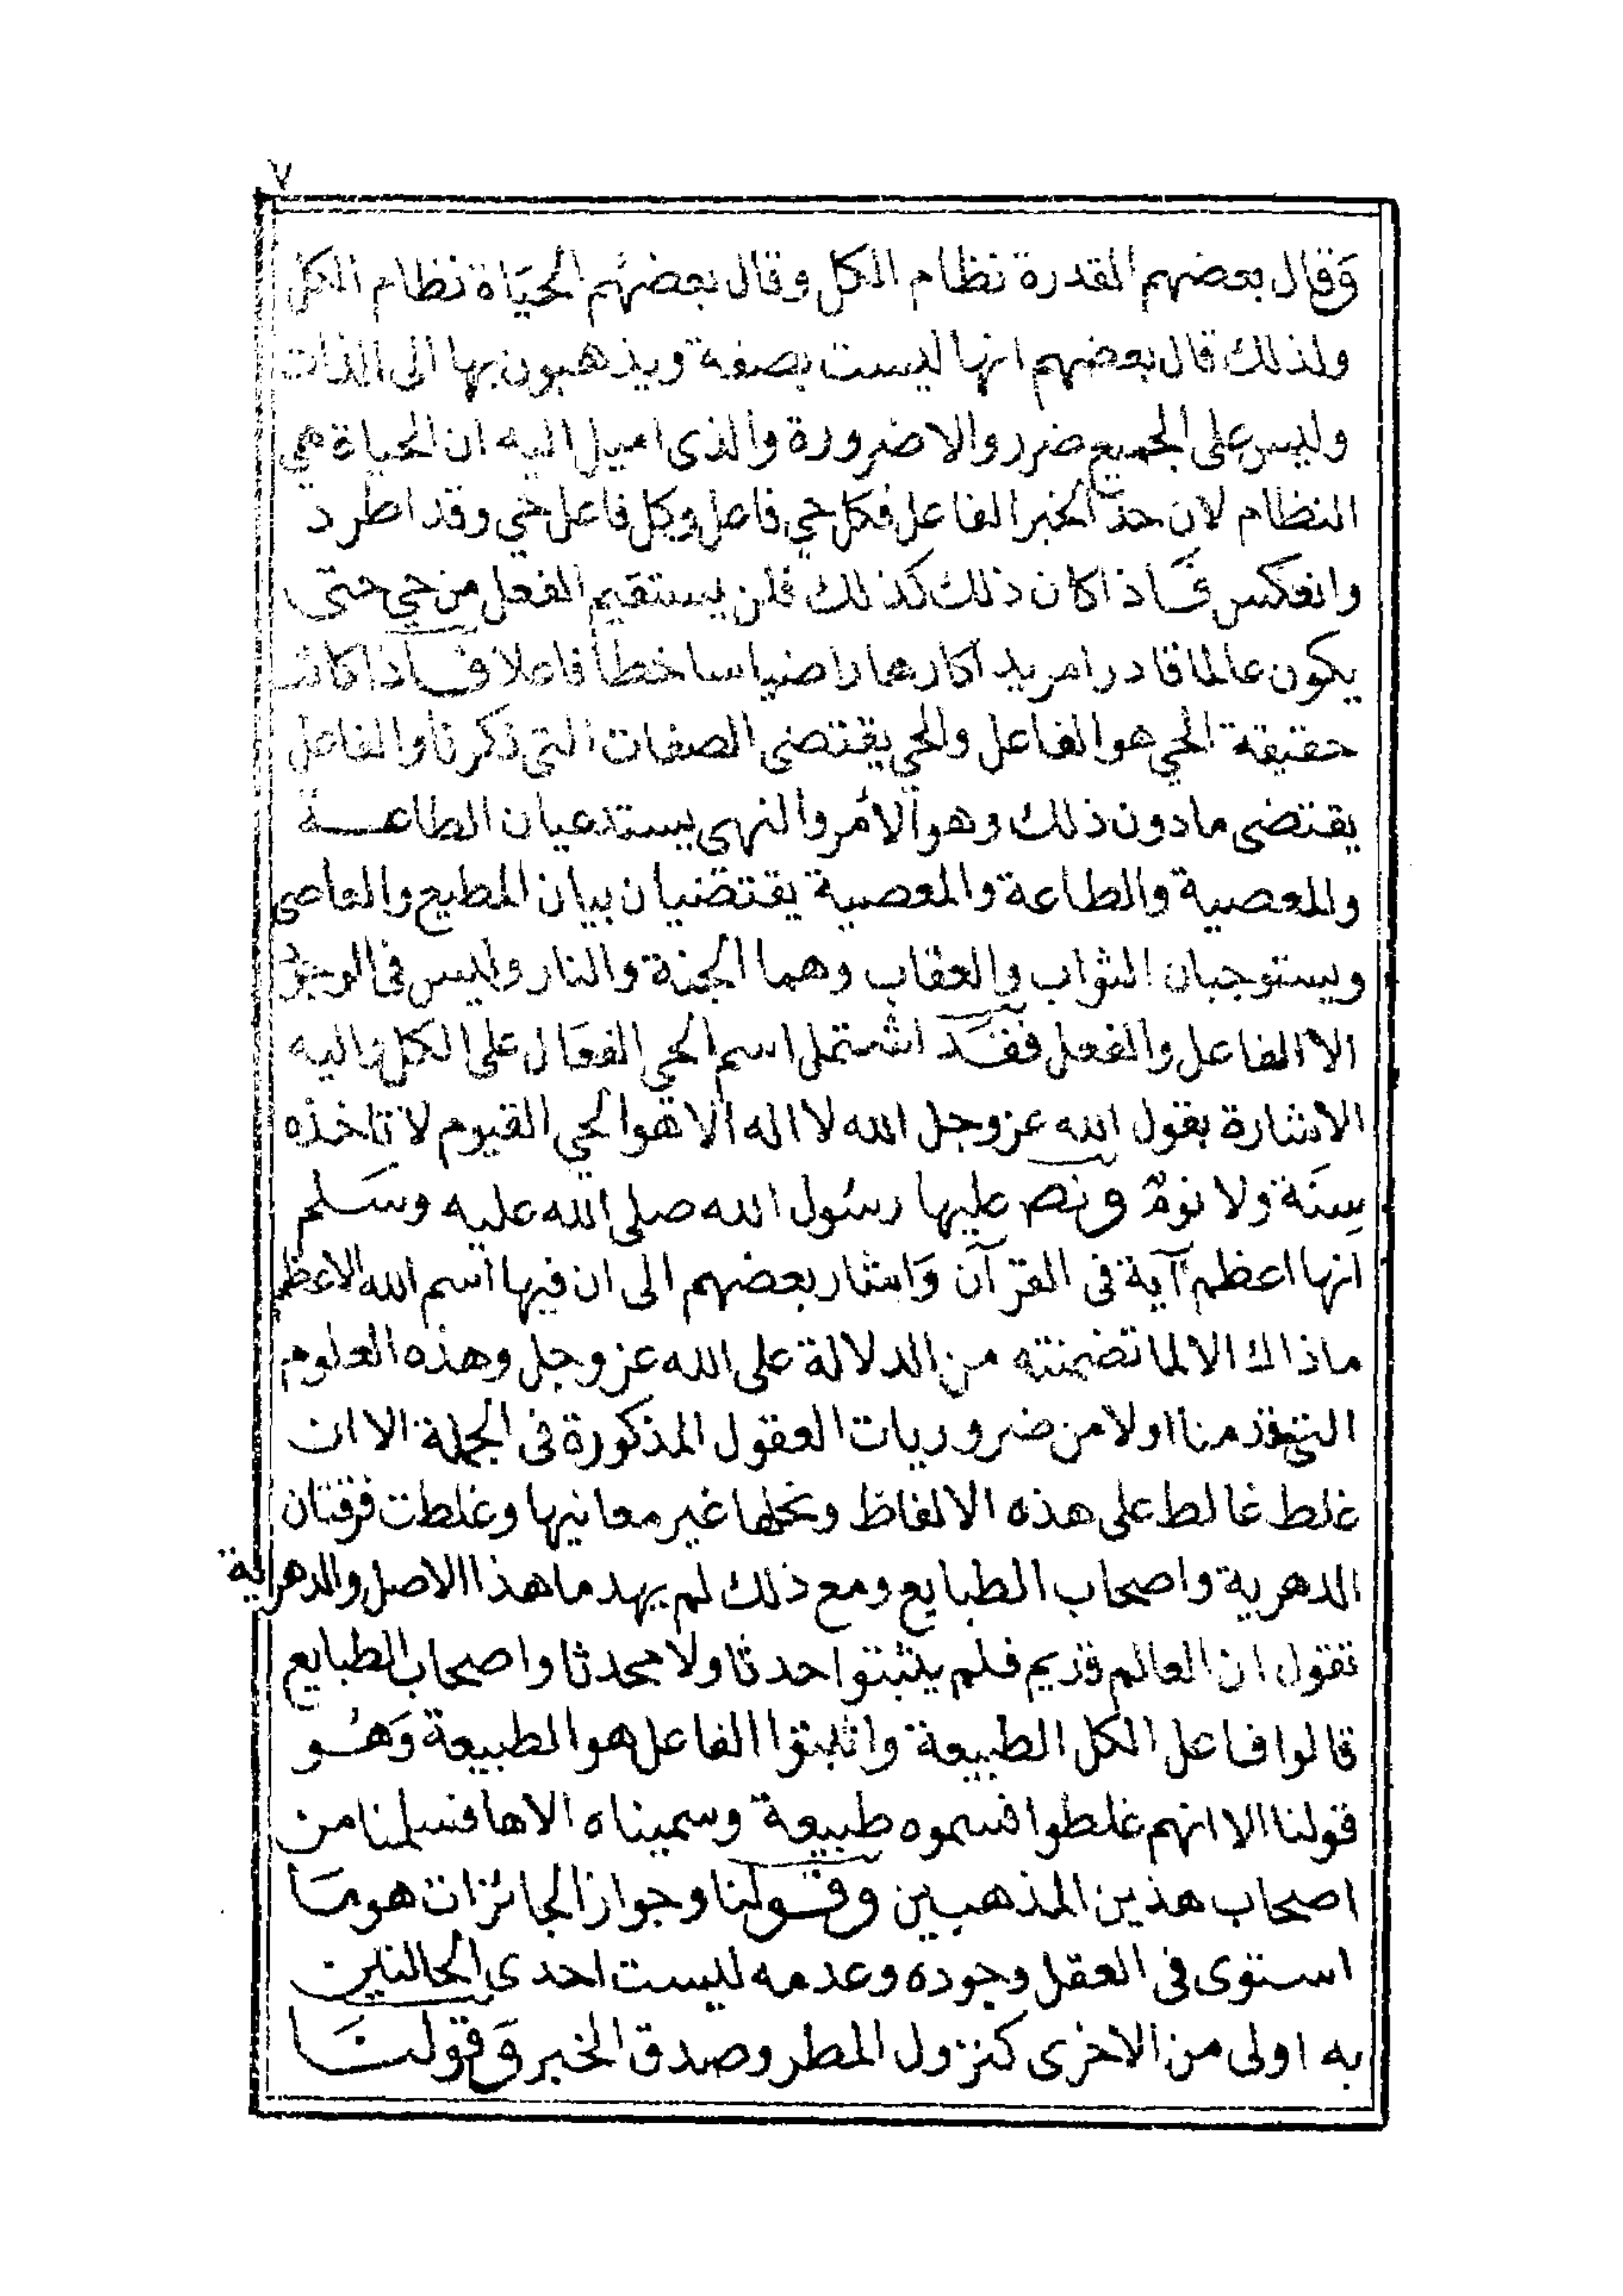 ٧
وَقال بعضهم القدرة نظام الكل وقال بعضهُم الحيَاة نظام الكل
ولذلك قال بعضهم انها ليست بصفة ويذهبون بها الى الذات
وليس على الجميع ضرر والاضرورة والذى اميل اليه ان الحياة هي
النظام لان حدّ الخبر الفاعل فكل حي فاعل وكل فاعل حي وقد اطرد
وانعكس فَاذا كان ذلك كذلك فلن يستقيم الفعل من حي حتى
يكون عالما قادرا مريدا كارها راضيا ساخطا فاعلا فاذا كانت
حقيقة الحي هو الفاعل والحي يقتضى الصفات التى ذكرنا والفاعل
يقتضى مادون ذلك وهو الأمر والنهى يستدعيان الطاعـــة
والمعصية والطاعة والمعصية يقتضيان بيان المطيع والعاصى
ويستوجبان الثواب والعقاب وهما الجنة والنار وليس فى الوجود
الا الفاعل والفعل فقَد اشتمل اسم الحي الفعَال على الكل واليه
الاشارة بقول الله عز وجل الله لا اله الا هو الحي القيوم لا تاخذه
سِنَة ولا نومٌ ونص عليها رسُول الله صلى الله عليه وسَلم
انها اعظم آية فى القرآن وَاشار بعضهم الى ان فيها اسم الله الاعظم
ماذاك الا لما تضمنته من الدلالة على الله عز وجل وهذه العلوم
التى قدمنا اولا من ضروريات العقول المذكورة فى الجملة الا ان
غلط غالط على هذه الالفاظ ونحلها غير معانيها وغلطت فرقتان
الدهرية واصحاب الطبايع ومع ذلك لم يهدما هذا الاصل والدهرية
تقول ان العالم قديم فلم يثبتوا حدثا ولا محدثا واصحاب الطبايع
قالوا فاعل الكل الطبيعة واثبتوا الفاعل هو الطبيعة وَهُـو
قولنا الا انهم غلطوا فسموه طبيعة وسميناه الاها فسلمنا من
اصحاب هذين المذهبين وقـولنا وجواز الجائزات هو مَا
استوى فى العقل وجوده وعدمه ليست احدى الحالتين
به اولى من الاخرى كنزول المطر وصدق الخبر وَقولنَـا